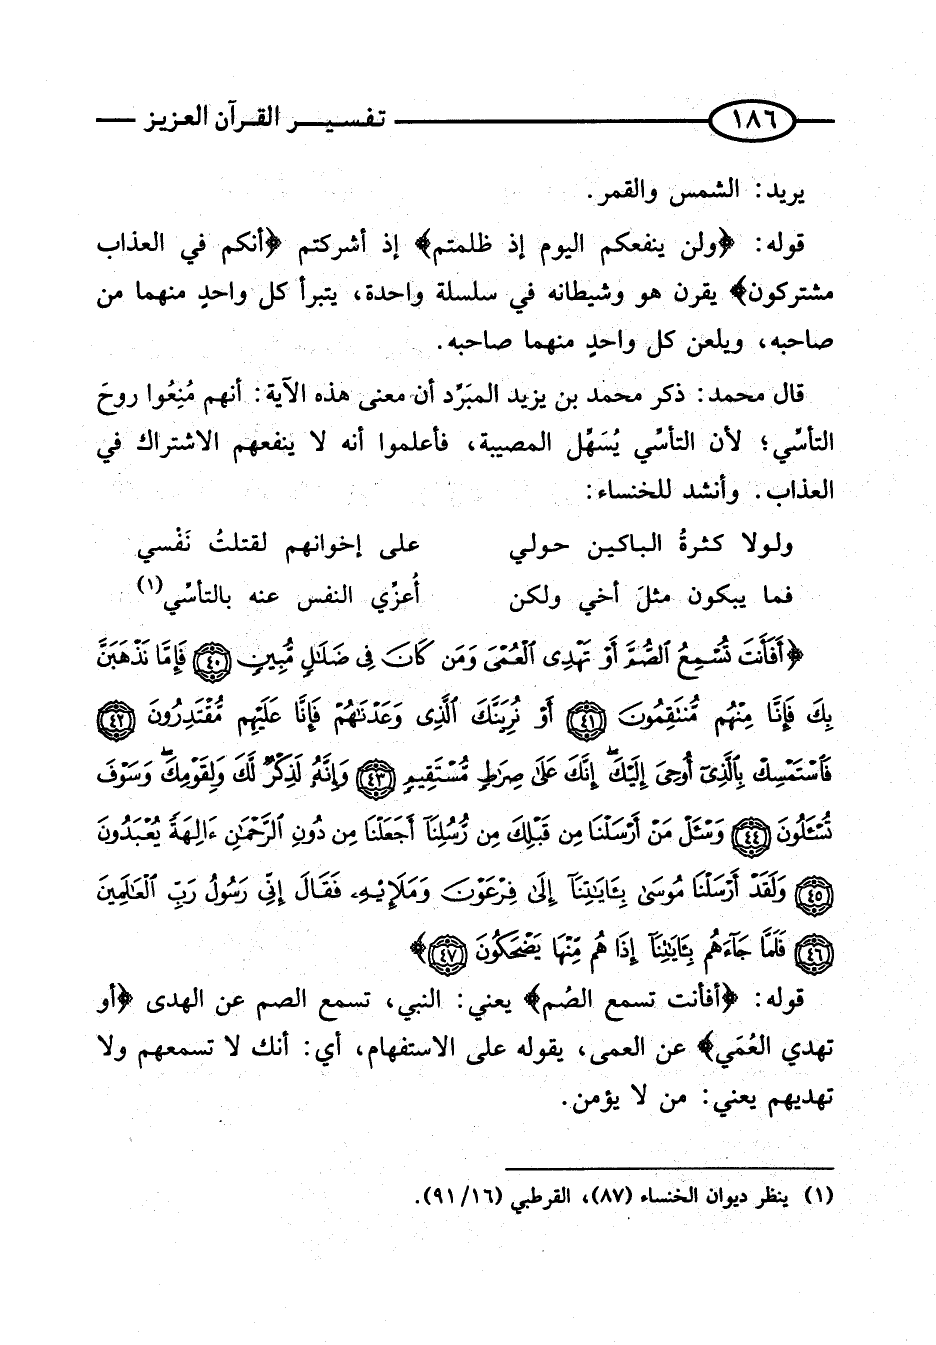 ١٨٦ تفسير القرآن العزيز
يريد: الشمس والقمر.
قوله: ﴿ولن ينفعكم اليوم إذ ظلمتم﴾ إذ أشركتم ﴿أنكم في العذاب
مشتركون﴾ يقرن هو وشيطانه في سلسلة واحدة، يتبرأ كل واحدٍ منهما من
صاحبه، ويلعن كل واحدٍ منهما صاحبه.
قال محمد: ذكر محمد بن يزيد المبَرِّد أن معنى هذه الآية: أنهم مُنِعُوا روحَ
التأسِّي؛ لأن التأسِّي يُسَهِّل المصيبة، فأعلموا أنه لا ينفعهم الاشتراك في
العذاب. وأنشد للخنساء:
ولولا كثرةُ الباكين حولي على إخوانهم لقتلتُ نَفْسي
فما يبكون مثلَ أخي ولكن أُعزِّي النفس عنه بالتأسِّي(١)
﴿أَفَأَنتَ تُسْمِعُ ٱلصُّمَّ أَوْ تَهْدِى ٱلْعُمْىَ وَمَن كَانَ فِى ضَلَٰلٍ مُّبِينٍ ٤٠ فَإِمَّا نَذْهَبَنَّ
بِكَ فَإِنَّا مِنْهُم مُّنتَقِمُونَ ٤١ أَوْ نُرِيَنَّكَ ٱلَّذِى وَعَدْنَٰهُمْ فَإِنَّا عَلَيْهِم مُّقْتَدِرُونَ ٤٢
فَٱسْتَمْسِكْ بِٱلَّذِىٓ أُوحِىَ إِلَيْكَ ۖ إِنَّكَ عَلَىٰ صِرَٰطٍ مُّسْتَقِيمٍ ٤٣ وَإِنَّهُۥ لَذِكْرٌ لَّكَ وَلِقَوْمِكَ ۖ وَسَوْفَ
تُسْـَٔلُونَ ٤٤ وَسْـَٔلْ مَنْ أَرْسَلْنَا مِن قَبْلِكَ مِن رُّسُلِنَآ أَجَعَلْنَا مِن دُونِ ٱلرَّحْمَٰنِ ءَالِهَةً يُعْبَدُونَ
٤٥ وَلَقَدْ أَرْسَلْنَا مُوسَىٰ بِـَٔايَٰتِنَآ إِلَىٰ فِرْعَوْنَ وَمَلَإِيْهِۦ فَقَالَ إِنِّى رَسُولُ رَبِّ ٱلْعَٰلَمِينَ
٤٦ فَلَمَّا جَآءَهُم بِـَٔايَٰتِنَآ إِذَا هُم مِّنْهَا يَضْحَكُونَ ٤٧﴾
قوله: ﴿أفأنت تسمع الصُم﴾ يعني: النبي، تسمع الصم عن الهدى ﴿أو
تهدي العُمَي﴾ عن العمى، يقوله على الاستفهام، أي: أنك لا تسمعهم ولا
تهديهم يعني: من لا يؤمن.
(١) ينظر ديوان الخنساء (٨٧)، القرطبي (٩١/١٦).